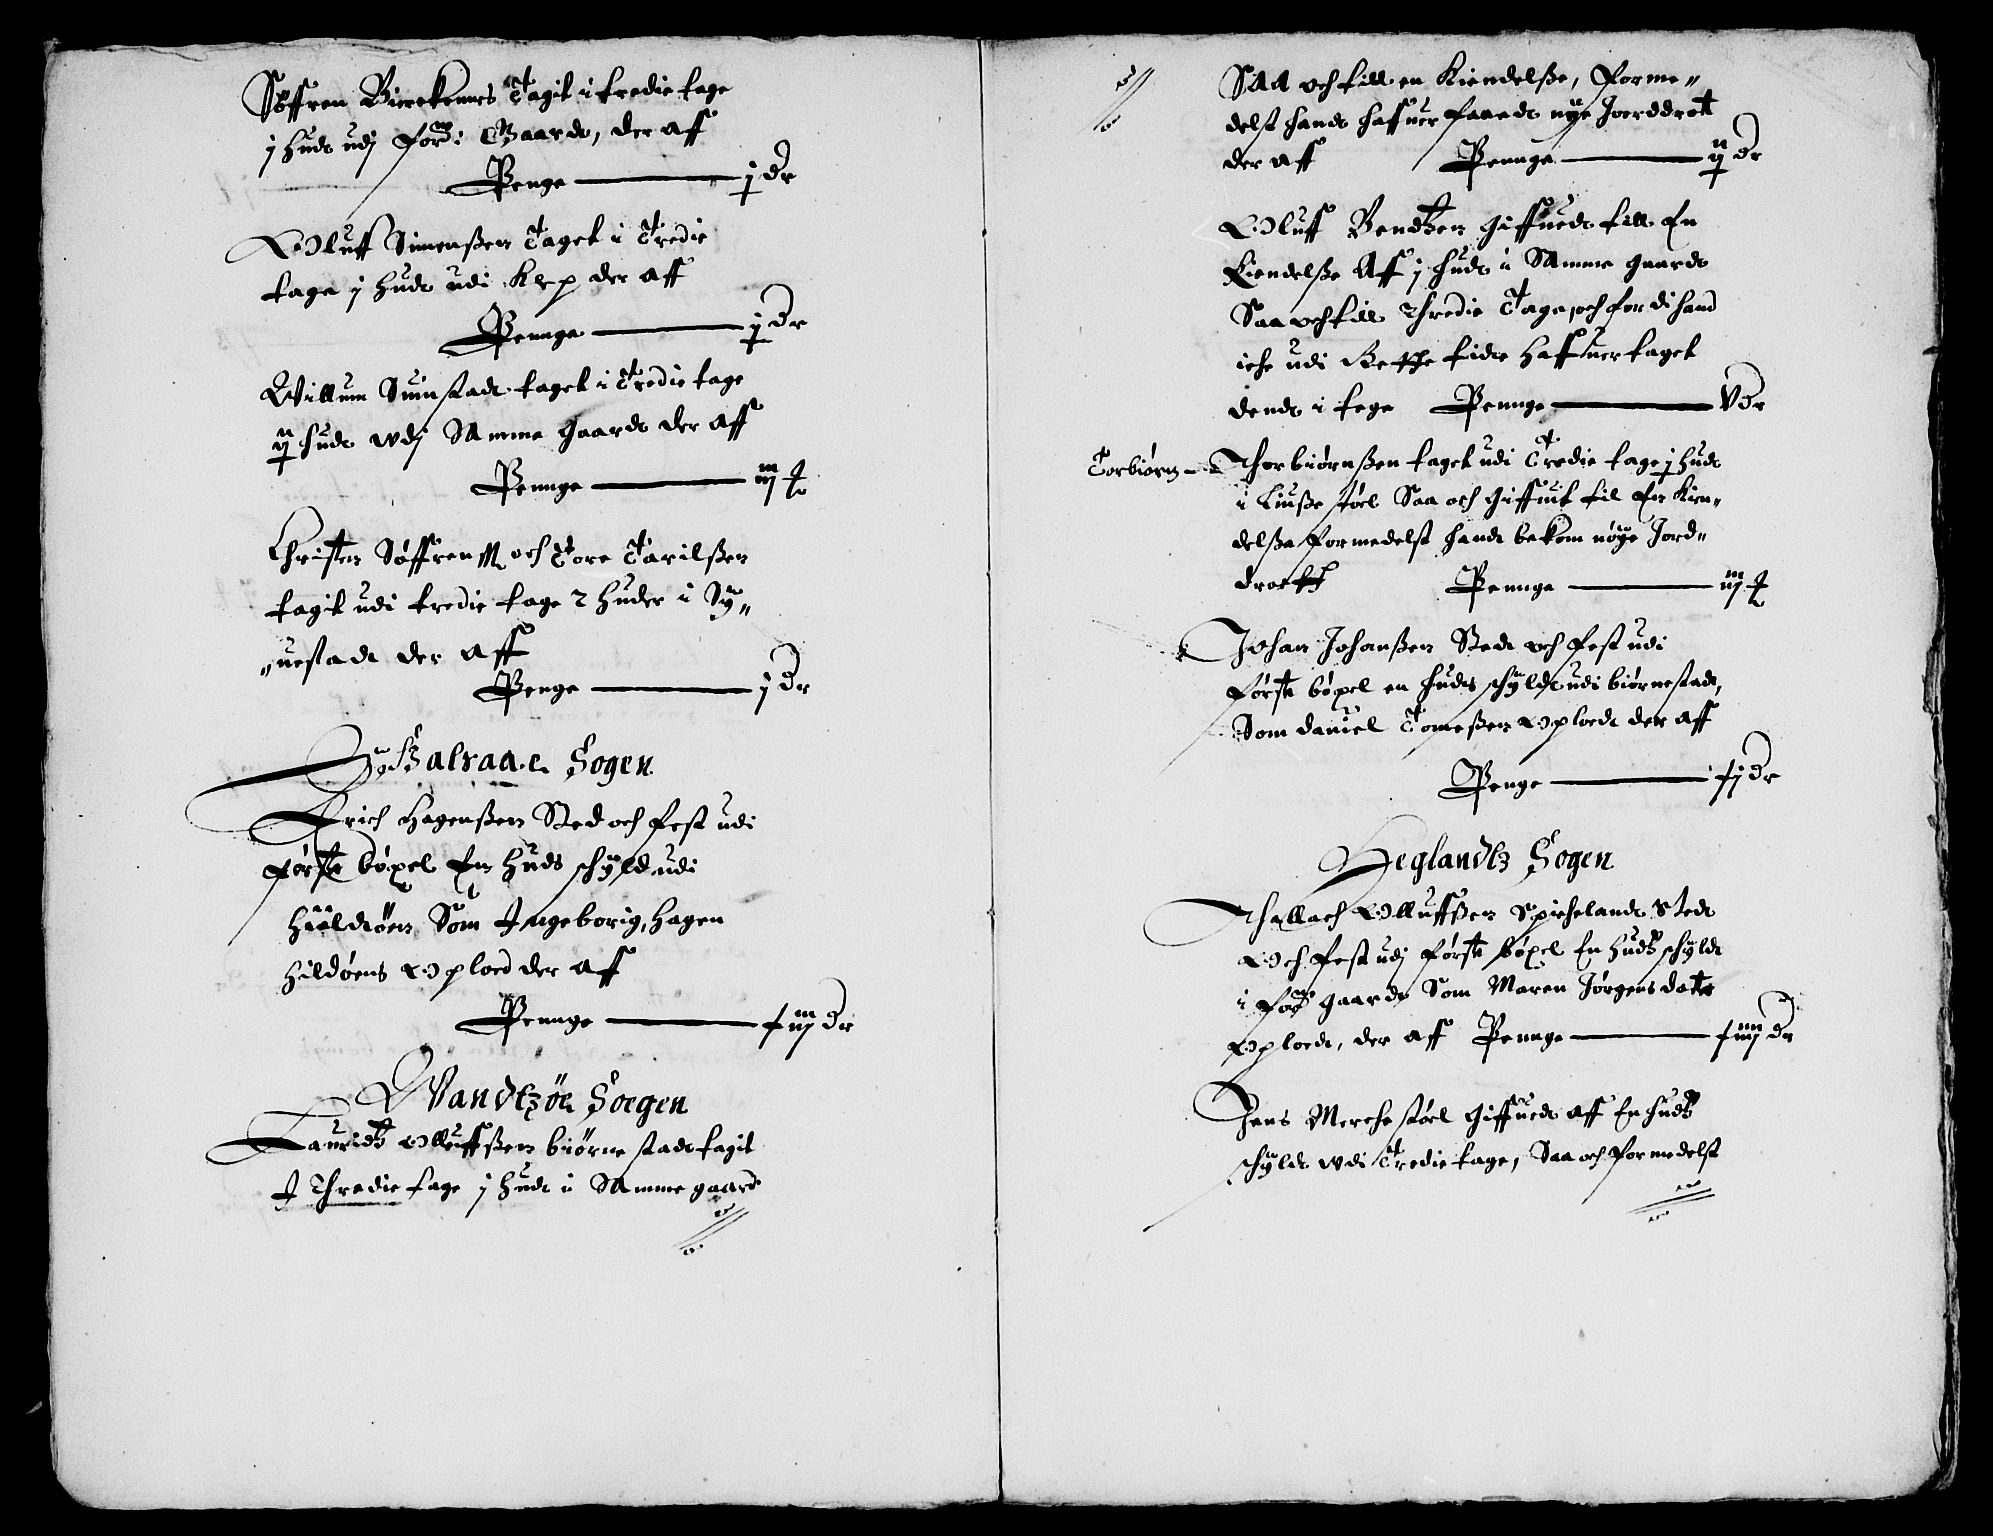 Søffren Birckenes Tagit i tredie tage
j hudt udj for: Gaardt, der aff
Penge j dr
Oluff Simenßen Taget i Tredie
tage j hudt udi Kep der aff
Pennge j dr
Willum taget i Tredie tage
ij hudt wdj Samme gaardt der aff
Pennge iij
Christen Søffrenß och Tore Tarilßen
tagit udi tredie tage 2 huder i Sy„
„uestadt der aff
Penge j dr
Sogen
Erich Hagenßen Sted och fest udi
første bøxel En Huds schyld udi
Som Ingeborig, Hagen
Hildøens Oploed der aff
Pennge dr
Wandtzöe Soegen
Lauridtz Olluffßen biörnestadt tagit
J Thredie tage j Hudt i Samme gaard
Saa och till en Kiendelße, forme„
delst handt haffuer faaedt nye Joerddrot
der aff Pennge ij dr
Oluff Bendtzen giffuedt till En
Kiendelße Aff j hudt i Samme gaardt
Saa och till Thredie Tage, och fordi hand
iche udi Rette tide Haffuer taget
dendt i tege Pennge V dr
Torbiørn Thorbiørnßen taget udi Tredie tage j hudt
i Saa och giffuit til En Kien„
delße formedelst handt bekom nøye Jord„
drott Pennge iij
Johan Johanßen Stedt och fest udi
Første bøxel en hudts schyldt udi biørnestadt,
Som daniel Tomeßen Oploedt der aff
Penge dr
Heglandtz Sogen
Thallach Olluffßen Spichelandt Stedt
Och fest udj første bøxel En Hudtz schyldt
i for gaardt Som Maren Jørgens dater
Oploedt, der aff Pennge dr
Jens Merchestøel giffuedt aff En hudtz
schyldt wdi Tredie tage, Saa och formedelst